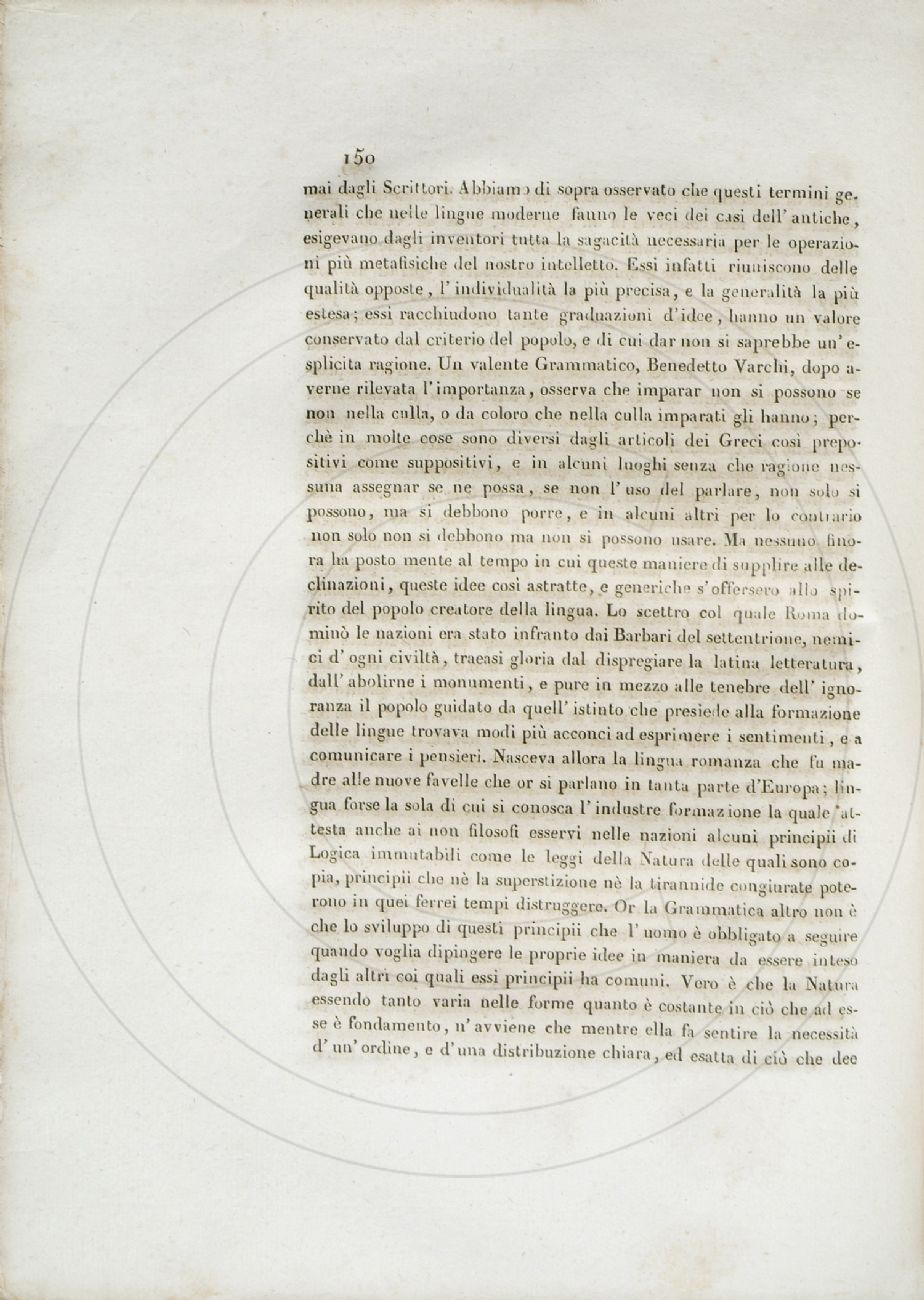 150
mai dagli Scrittori. Abbiamo di sopra osservato che questi termini ge-
nerali che nelle lingue moderne fanno le veci dei casi dell' antiche,
esigevano dagli inventori tutta la sagacità necessaria per le operazio-
ni più metafisiche del nostro intelletto. Essi infatti riuniscono delle
qualità opposte, l' individualità la più precisa, e la generalità la più
estesa; essi racchiudono tante graduazioni d'idee, hanno un valore
conservato dal criterio del popolo, e di cui dar non si saprebbe un' e-
splicita ragione. Un valente Grammatico, Benedetto Varchi, dopo a-
verne rilevata l'importanza, osserva che imparar non si possono se
non nella culla, o da coloro che nella culla imparati gli hanno; per-
chè in molte cose sono diversi dagli articoli dei Greci così prepo-
sitivi come suppositivi, e in alcuni luoghi senza che ragione nes-
suna assegnar se ne possa, se non l' uso del parlare, non solo si
possono, ma si debbono porre, e in alcuni altri per lo contrario
non solo non si debbono ma non si possono usare. Ma nessuno fino-
ra ha posto mente al tempo in cui queste maniere di supplire alle de-
clinazioni, queste idee così astratte, e generiche s'offersero allo spi-
rito del popolo creatore della lingua. Lo scettro col quale Roma do-
minò le nazioni era stato infranto dai Barbari del settentrione, nemi-
ci d' ogni civiltà, traeasi gloria dal dispregiare la latina letteratura,
dall' abolirne i monumenti, e pure in mezzo alle tenebre dell' igno-
ranza il popolo guidato da quell' istinto che presiede alla formazione
delle lingue trovava modi più acconci ad esprimere i sentimenti, e a
comunicare i pensieri. Nasceva allora la lingua romanza che fu ma-
dre alle nuove favelle che or si parlano in tanta parte d'Europa; lin-
gua forse la sola di cui si conosca l' industre formazione la quale at-
testa anche ai non filosofi esservi nelle nazioni alcuni principii di
Logica immutabili come le leggi della Natura delle quali sono co-
pia, principii che nè la superstizione nè la tirannide congiurate pote-
rono in quei ferrei tempi distruggere. Or la Grammatica altro non è
che lo sviluppo di questi principii che l' uomo è obbligato a seguire
quando voglia dipingere le proprie idee in maniera da essere inteso
dagli altri coi quali essi principii ha comuni. Vero è che la Natura
essendo tanto varia nelle forme quanto è costante in ciò che ad es-
se è fondamento, n' avviene che mentre ella fa sentire la necessità
d' un' ordine, e d'una distribuzione chiara, ed esatta di ciò che dee